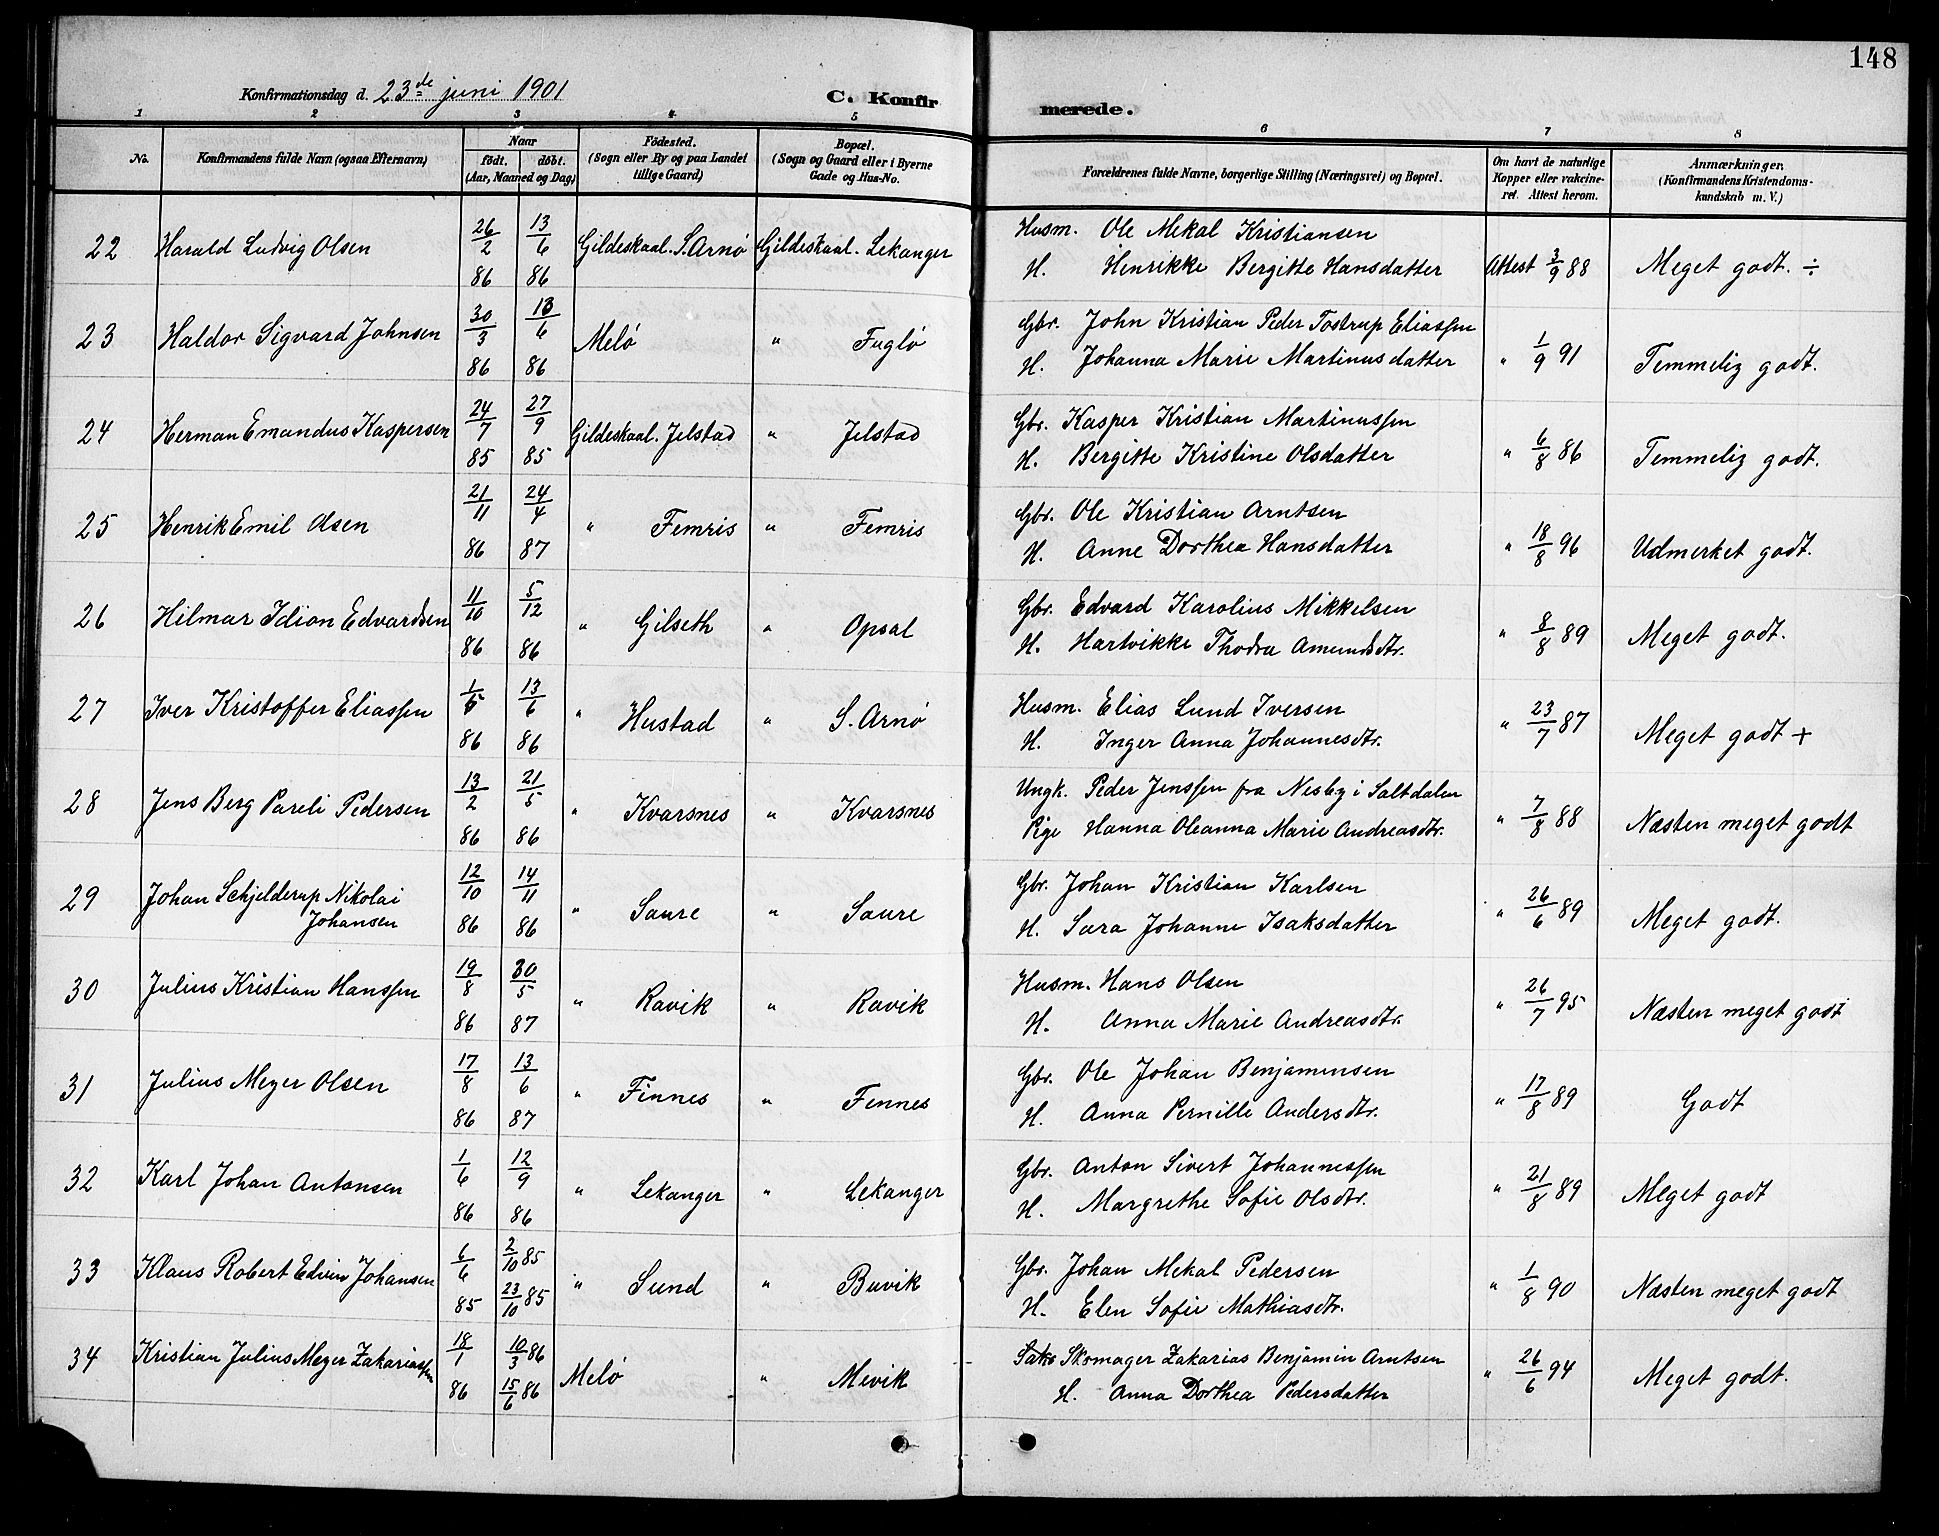 148
Konfirmationsdag d. 23de juni 1901 C. Konfirmerede.
1 2 3 4 5 6 7 8
No. Konfirmandens fulde Navn (ogsaa Efternavn) Naar født. døbt. (Aar, Maaned og Dag) Fødested. (Sogn eller By og paa Landet tillige Gaard) Bopæl. (Sogn og Gaard eller i Byerne Gade og Hus-No. Forældrenes fulde Navne, borgerlige Stilling (Næringsvei) og Bopæl. Om havt de naturlige Kopper eller vakcineret. Attest herom. Anmærkninger. (Konfirmandens Kristendomskundskab m. V.)
22 Harald Ludvig Olsen 26/2 86 13/6 86 Gildeskaal. S. Arnø Gildeskaal. Lekanger Husm. Ole Mekal Kristiansen
H. Henrikke Bergitte Hansdatter Attest 3/9 88 Meget godt. ÷
23 Haldor Sigvard Johnsen 30/3 86 13/6 86 Melø " Fuglø Gbr. John Kristian Peder Tostrup Eliassen
H. Johanna Marie Martinusdatter " 1/9 91 Temmelig godt.
24 Herman Emandus Kaspersen 24/7 85 27/9 85 Gildeskaal. Jelstad " Jelstad Gbr. Kasper Kristian Martinussen
H. Bergitte Kristine Olsdatter " 6/8 86 Temmelig godt.
25 Henrik Emil Olsen 21/11 86 24/4 87 " Femris " Femris Gbr. Ole Kristian Arntsen
H. Anne Dorthea Hansdatter " 18/8 96 Udmerket godt.
26 Hilmar Idion Edvardsen 11/10 86 5/12 86 " Gilseth " Opsal Gbr. Edvard Karolius Mikkelsen
H. Hartvikke Thodra Amundsdtr. " 8/8 89 Meget godt.
27 Iver Kristoffer Eliassen 1/5 86 13/6 86 " Hustad " S. Arnø Husm. Elias Lund Iversen
H. Inger Anna Johannesdtr. " 23/7 87 Meget godt +
28 Jens Berg Pareli Pedersen 13/2 86 21/5 86 " Kvarsnes " Kvarsnes Ungk. Peder Jenssen fra Nesby i Saltdalen
Pige Hanna Oleanna Marie Andreasdtr. " 7/8 88 Næsten meget godt
29 Johan Schjelderup Nikolai
Johansen 12/10 86 14/11 86 " Saure " Saure Gbr. Johan Kristian Karlsen
H. Sara Johanne Isaksdatter " 26/6 89 Meget godt.
30 Julius Kristian Hanssen 19/8 86 30/5 87 " Ravik " Ravik Husm. Hans Olsen
H. Anna Marie Andreasdtr. " 26/7 95 Næsten meget godt
31 Julius Meyer Olsen 17/8 86 13/6 87 " Finnes " Finnes Gbr. Ole Johan Benjaminsen
H. Anna Pernille Andersdtr. " 17/8 89 Godt
32 Karl Johan Antonsen 1/6 86 12/9 86 " Lekanger " Lekanger Gbr. Anton Sivert Johannessen
H. Margrethe Sofie Olsdtr. " 21/8 89 Meget godt
33 Klaus Robert Edvin Johansen 6/6 85 2/10 85 23/10 85 " Sund " Buvik Gbr. Johan Mekal Pedersen
H. Elen Sofie Mathiasdtr. " 1/8 90 Næsten meget godt
34 Kristian Julius Meyer Zakariassen 18/1 86 10/3 86 15/6 86 Melø " Mevik Skomager Zakarias Benjamin Arntsen
H. Anna Dorthea Pedersdatter " 26/6 94 Meget godt.